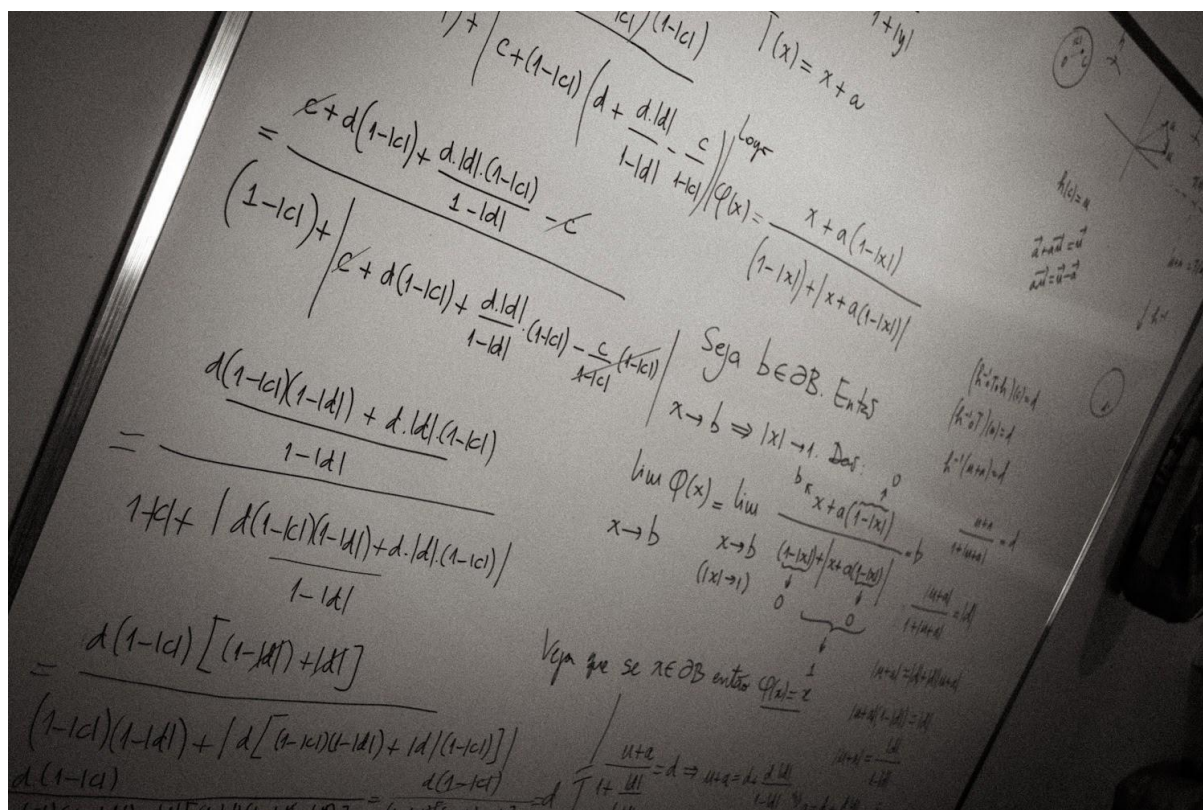 c+(1-|c|)(d + \frac{d.|d|}{1-|d|} - \frac{c}{1-|c|})
= \frac{c + d(1-|c|) + \frac{d.|d|.(1-|c|)}{1-|d|} - c}{(1-|c|) + |c + d(1-|c|) + \frac{d.|d|}{1-|d|}.(1-|c|) - \frac{c}{1-|c|}(1-|c|)|}
= \frac{\frac{d(1-|c|)(1-|d|) + d.|d|.(1-|c|)}{1-|d|}}{1-|c| + |\frac{d(1-|c|)(1-|d|) + d.|d|.(1-|c|)}{1-|d|}|}
= \frac{d(1-|c|)[(1-|d|)+|d|]}{(1-|c|)(1-|d|) + |d[(1-|c|)(1-|d|) + |d|(1-|c|)]|}
d.(1-|c|)
= d(1-|c|)
= d
T(x) = x + a
1+|y|
Logo
φ(x) = \frac{x + a(1-|x|)}{(1-|x|) + |x + a(1-|x|)|}
Seja b ∈ ∂B. Então
x → b ⇒ |x| → 1. Daí:
lim φ(x) = lim \frac{x + a(1-|x|)}{(1-|x|) + |x + a(1-|x|)|} = b
x → b x → b
(|x| → 1)
b 0
0 0
1
Veja que se x ∈ ∂B então φ(x) = x
\frac{u+a}{1+|d|} = d ⇒ u+a = d + \frac{d|d|}{1-|d|}
h(c) = u
\vec{a} + \vec{au} = \vec{u}
\vec{au} = \vec{u} - \vec{a}
↓ h⁻¹
(h⁻¹∘T∘h)(c) = d
(h⁻¹∘T)(u) = d
h⁻¹(u+a) = d
\frac{u+a}{1+|u+a|} = d
\frac{|u+a|}{1+|u+a|} = |d|
|u+a| = |d|+|d||u+a|
|u+a|(1-|d|) = |d|
|u+a| = \frac{|d|}{1-|d|}